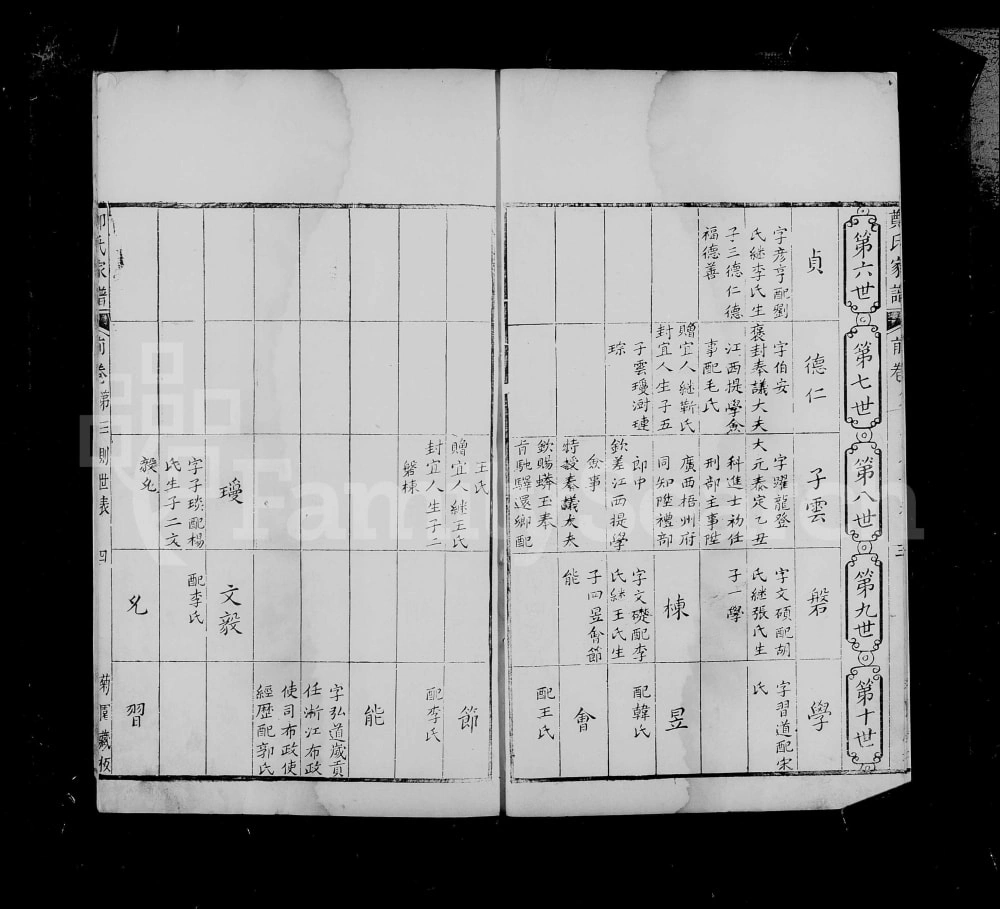 鄭氏家譜
前卷
三
第六世
第七世
第八世
第九世
第十世
貞
字彥亨配劉
氏繼李氏生
子三德仁德
福德善
德仁
字伯安
褒封奉議大夫
江西提學僉
事配毛氏
贈宜人繼靳氏
封宜人生子五
子雲瓊澍璉
琮
子雲
字躍龍登
大元泰定乙丑
科進士初任
刑部主事陞
廣西梧州府
同知陞禮部
郎中
欽差江西提學
僉事
特授奉議大夫
欽賜蟒玉奉
旨馳驛還鄉配
王氏
贈宜人繼王氏
封宜人生子二
磐棟
磐
字文碩配胡
氏繼張氏生
子一學
學
字習道配宋
氏
棟
字文礎配李
氏繼王氏生
子四昱會節
能
昱
配韓氏
會
配王氏
節
配李氏
能
字弘道歲貢
任浙江布政
使司布政使
經歷配郭氏
瓊
字子琰配楊
氏生子二文
毅允
文毅
配李氏
允
習
氏家譜
前卷第三則世表
四
菊圃藏板
FamilySearch